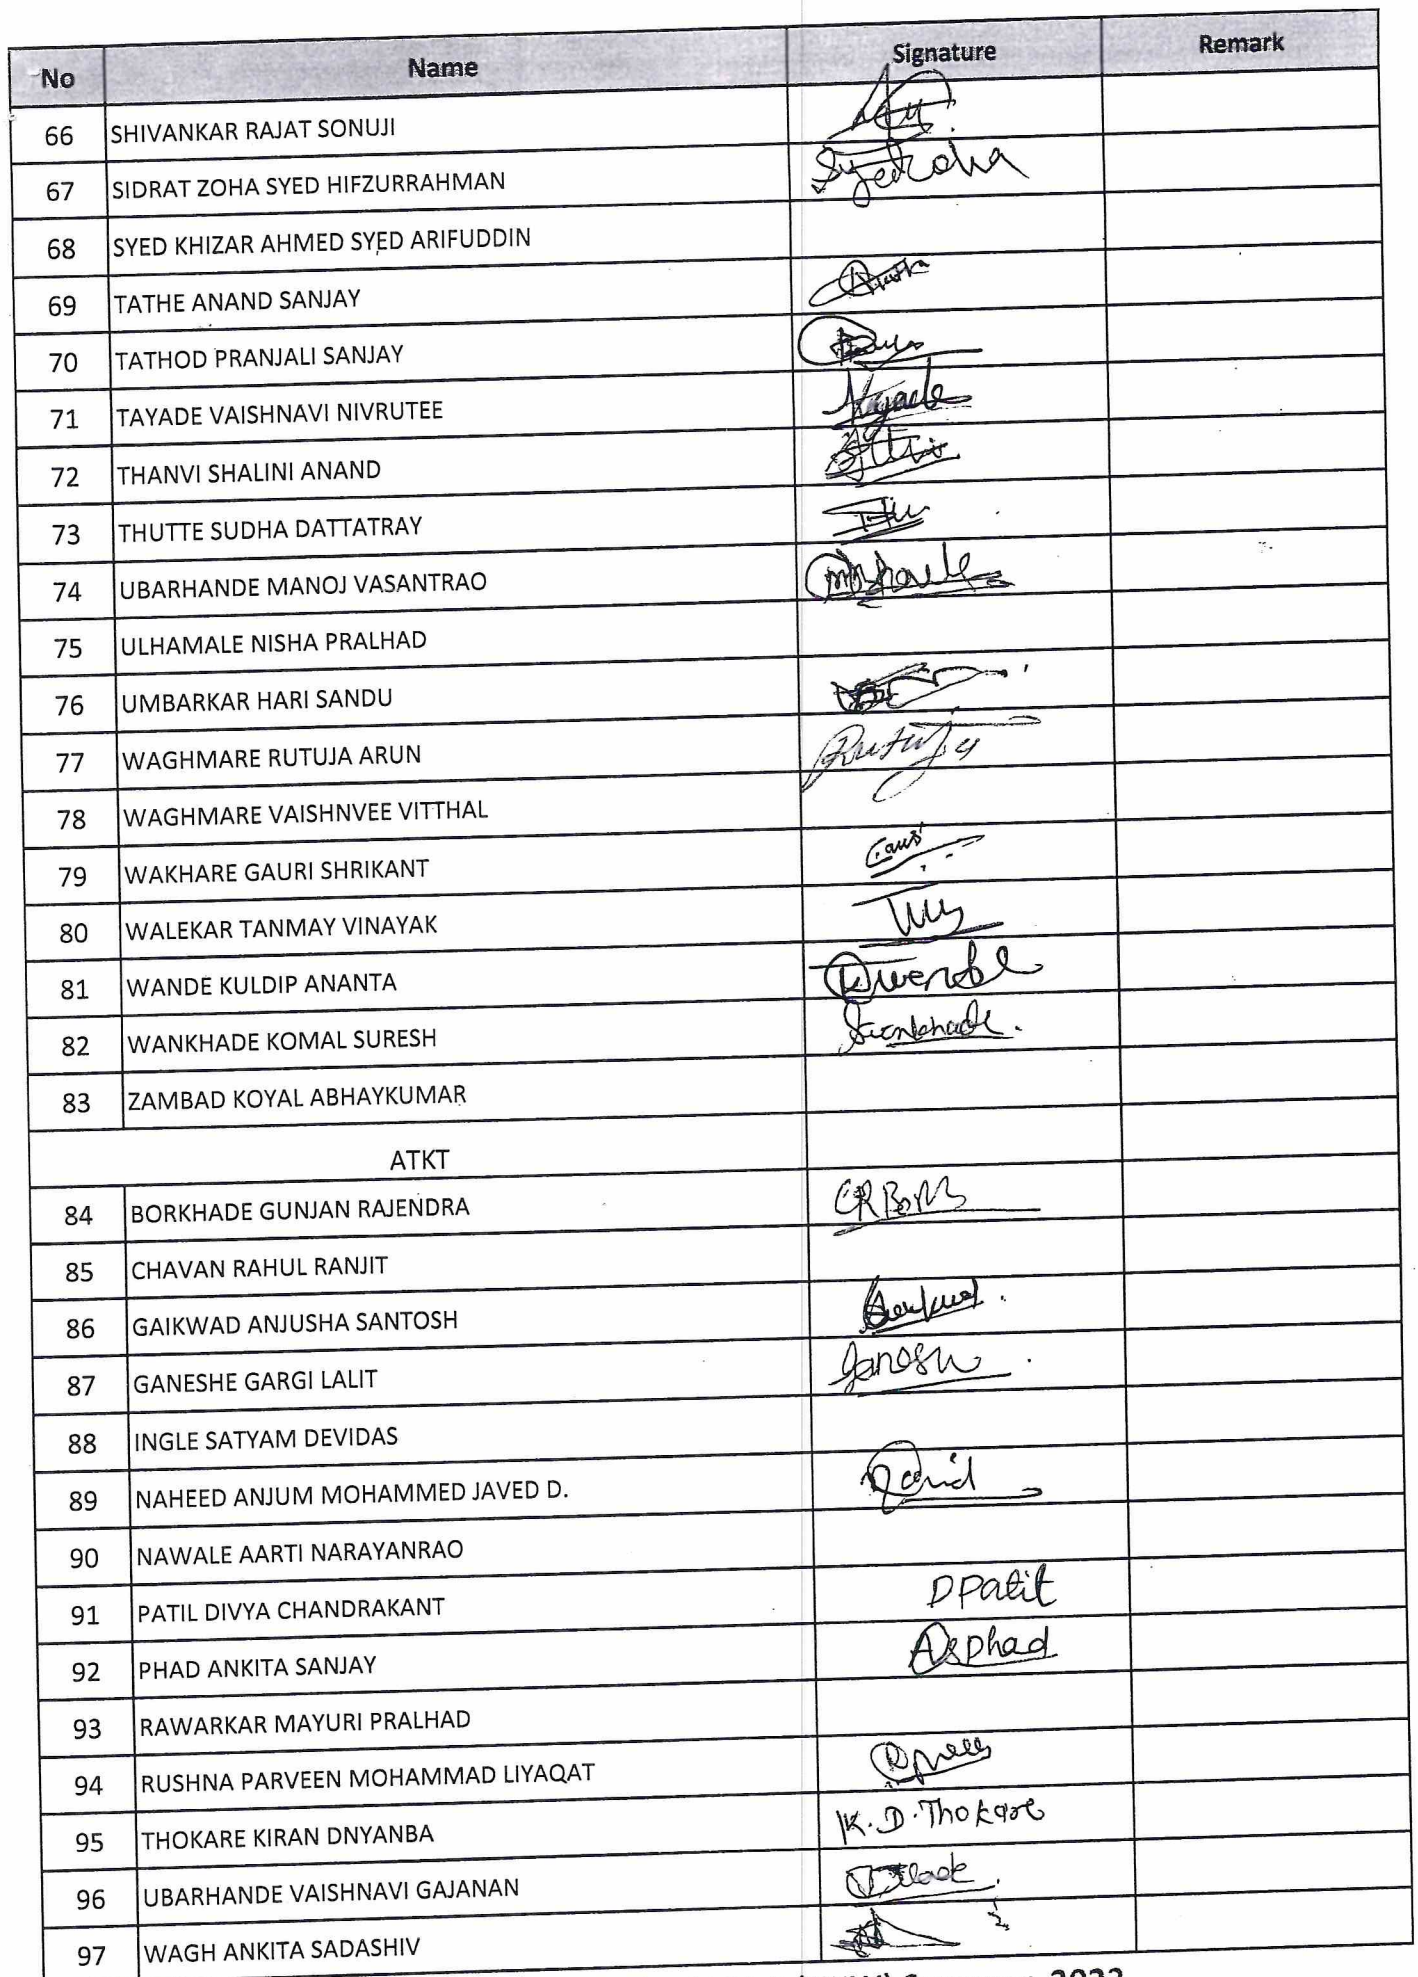 No Name Signature Remark
66 SHIVANKAR RAJAT SONUJI
67 SIDRAT ZOHA SYED HIFZURRAHMAN Syedzoha
68 SYED KHIZAR AHMED SYED ARIFUDDIN
69 TATHE ANAND SANJAY
70 TATHOD PRANJALI SANJAY
71 TAYADE VAISHNAVI NIVRUTEE
72 THANVI SHALINI ANAND
73 THUTTE SUDHA DATTATRAY
74 UBARHANDE MANOJ VASANTRAO
75 ULHAMALE NISHA PRALHAD
76 UMBARKAR HARI SANDU
77 WAGHMARE RUTUJA ARUN Rutuja
78 WAGHMARE VAISHNVEE VITTHAL
79 WAKHARE GAURI SHRIKANT
80 WALEKAR TANMAY VINAYAK
81 WANDE KULDIP ANANTA
82 WANKHADE KOMAL SURESH
83 ZAMBAD KOYAL ABHAYKUMAR
ATKT
84 BORKHADE GUNJAN RAJENDRA
85 CHAVAN RAHUL RANJIT
86 GAIKWAD ANJUSHA SANTOSH
87 GANESHE GARGI LALIT
88 INGLE SATYAM DEVIDAS
89 NAHEED ANJUM MOHAMMED JAVED D.
90 NAWALE AARTI NARAYANRAO
91 PATIL DIVYA CHANDRAKANT DPatil
92 PHAD ANKITA SANJAY Asphad
93 RAWARKAR MAYURI PRALHAD
94 RUSHNA PARVEEN MOHAMMAD LIYAQAT
95 THOKARE KIRAN DNYANBA K.D.Thokare
96 UBARHANDE VAISHNAVI GAJANAN
97 WAGH ANKITA SADASHIV